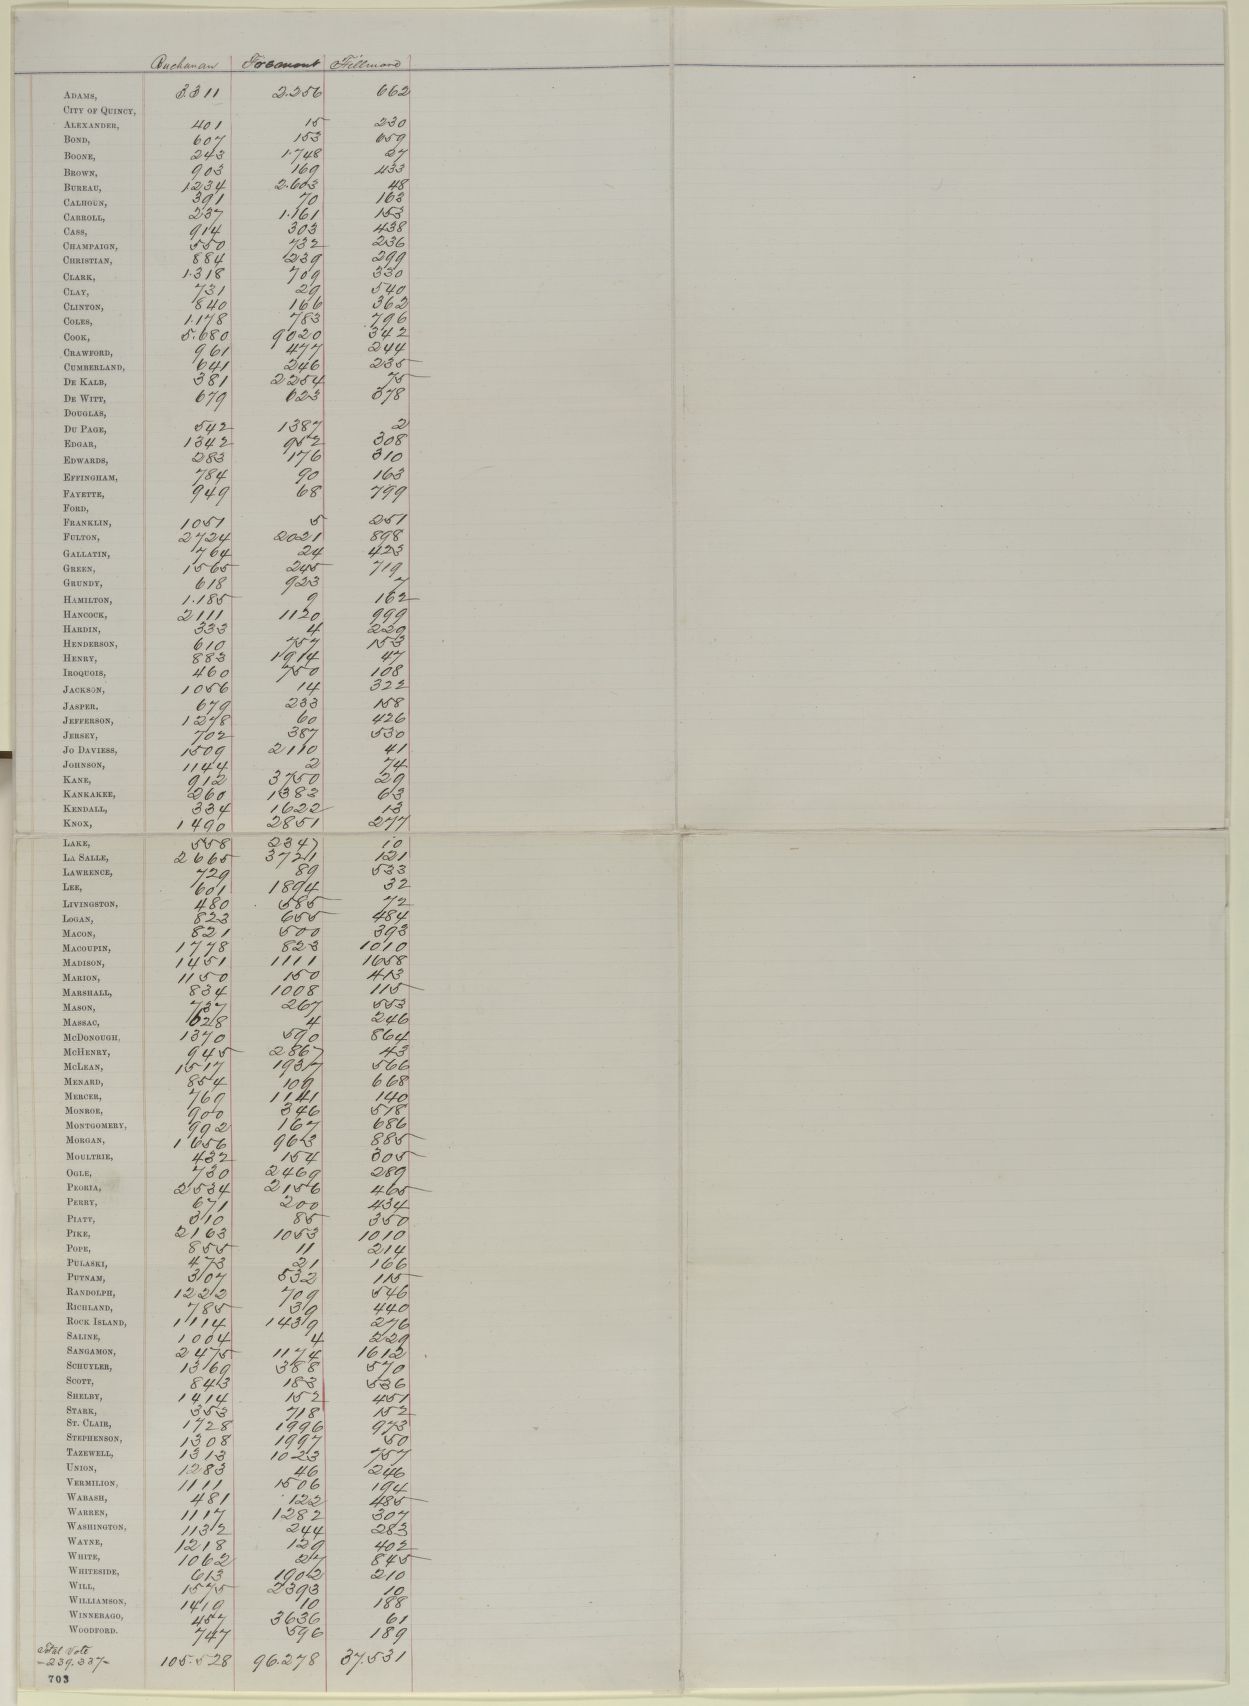 Buchanan Freemont Fillmore
Adams, 3.311 2.256 662
City of Quincy,
Alexander, 401 15 230
Bond, 607 153 659
Boone, 243 1.748 27
Brown, 903 169 433
Bureau, 1.234 2.603 48
Calhoun, 391 70 163
Carroll, 237 1.161 153
Cass, 914 303 438
Champaign, 550 732 236
Christian, 884 239 299
Clark, 1.318 709 330
Clay, 731 29 540
Clinton, 840 166 362
Coles, 1.178 783 796
Cook, 5.680 9020 342
Crawford, 961 477 244
Cumberland, 641 246 235
De Kalb, 381 2254 75
De Witt, 679 623 378
Douglas,
Du Page, 542 1387 2
Edgar, 1342 952 308
Edwards, 283 176 310
Effingham, 784 90 163
Fayette, 949 68 799
Ford,
Franklin, 1051 5 251
Fulton, 2724 2021 898
Gallatin, 764 24 423
Green, 1565 245 719
Grundy, 618 923 7
Hamilton, 1.185 9 162
Hancock, 2111 1120 999
Hardin, 333 4 229
Henderson, 610 757 153
Henry, 883 1914 47
Iroquois, 460 750 108
Jackson, 1056 14 322
Jasper, 679 233 158
Jefferson, 1278 60 426
Jersey, 702 387 530
Jo Daviess, 1509 2110 41
Johnson, 1144 2 74
Kane, 912 3750 29
Kankakee, 260 1383 63
Kendall, 334 1622 13
Knox, 1490 2851 277
Lake, 558 2347 10
La Salle, 2665 3721 121
Lawrence, 729 89 533
Lee, 601 1894 32
Livingston, 480 585 72
Logan, 823 655 484
Macon, 821 500 393
Macoupin, 1778 823 1010
Madison, 1451 1111 1658
Marion, 1150 150 413
Marshall, 834 1008 115
Mason, 737 267 553
Massac, 628 4 246
McDonough, 1370 590 864
McHenry, 945 2867 43
McLean, 1517 1937 566
Menard, 854 109 668
Mercer, 769 1141 140
Monroe, 900 346 518
Montgomery, 992 167 686
Morgan, 1656 963 885
Moultrie, 432 154 305
Ogle, 730 2469 289
Peoria, 2534 2156 465
Perry, 671 200 434
Piatt, 310 85 350
Pike, 2163 1053 1010
Pope, 855 11 214
Pulaski, 473 21 166
Putnam, 307 532 115
Randolph, 1222 709 546
Richland, 785 39 440
Rock Island, 1114 1439 276
Saline, 1004 4 229
Sangamon, 2475 1174 1612
Schuyler, 1369 388 570
Scott, 843 183 536
Shelby, 1414 152 451
Stark, 353 718 152
St. Clair, 1728 1996 973
Stephenson, 1308 1997 50
Tazewell, 1313 1023 757
Union, 1283 46 246
Vermilion, 1111 1506 194
Wabash, 481 122 485
Warren, 1117 1282 307
Washington, 1132 244 283
Wayne, 1218 129 402
White, 1062 27 845
Whiteside, 613 1902 210
Will, 1575 2393 10
Williamson, 1419 10 188
Winnebago, 457 3636 61
Woodford. 747 596 189
Total Vote
-239.337- 105.528 96.278 37.531
703